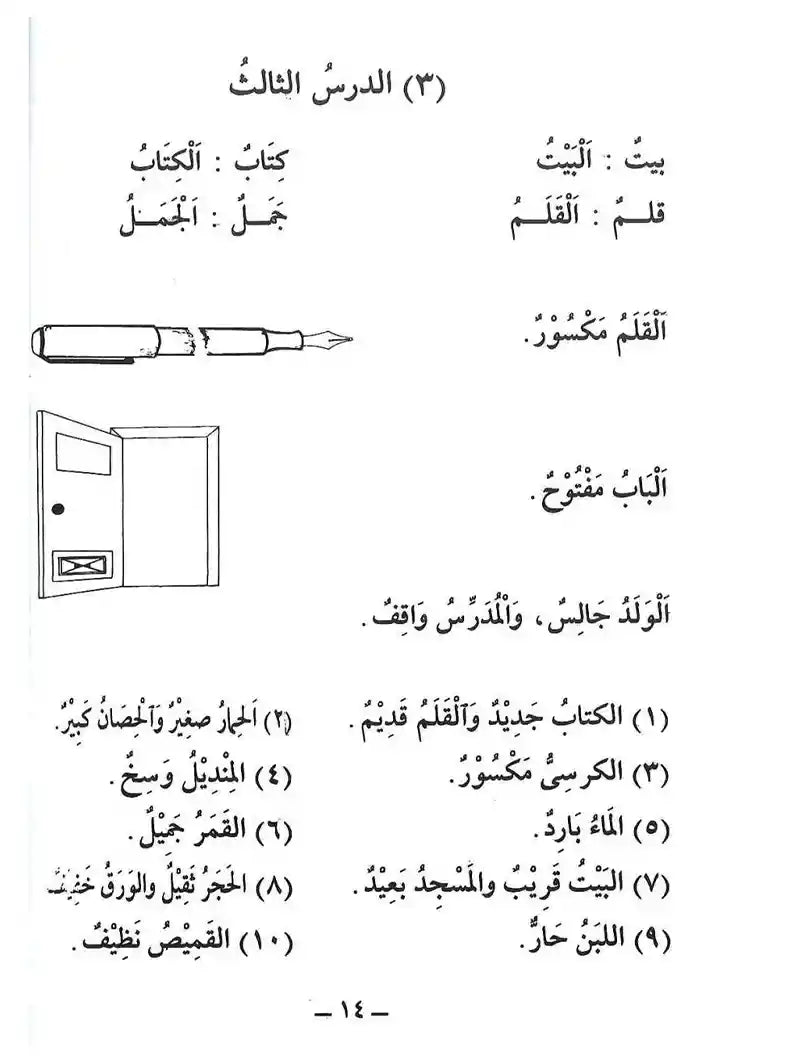 (٣) الدرسُ الثالثُ
بيتٌ : اَلْبَيْتُ كِتَابٌ : اَلْكِتَابُ
قلـمٌ : اَلْقَلَـمُ جَمَـلٌ : اَلْجَمَـلُ
اَلْقَلَمُ مَكْسُوْرٌ.
اَلْبَابُ مَفْتُوْحٌ.
اَلْوَلَدُ جَالِسٌ، وَالْمُدَرِّسُ وَاقِفٌ.
(١) الكتابُ جَدِيْدٌ وَٱلْقَلَمُ قَدِيْمٌ. (٢) اَلحِمارُ صغِيْرٌ وَٱلْحِصَانُ كَبِيْرٌ.
(٣) الكرسىُّ مَكْسُوْرٌ. (٤) المِنْدِيْلُ وَسِخٌ.
(٥) المَاءُ بَارِدٌ. (٦) القَمَرُ جَمِيْلٌ.
(٧) البَيْتُ قَرِيْبٌ والمَسْجِدُ بَعِيْدٌ. (٨) الحَجَرُ ثَقِيْلٌ والوَرَقُ خَفِيْفٌ
(٩) اللبَنُ حَارٌّ. (١٠) القَمِيْصُ نَظِيْفٌ.
ـ ١٤ ـ